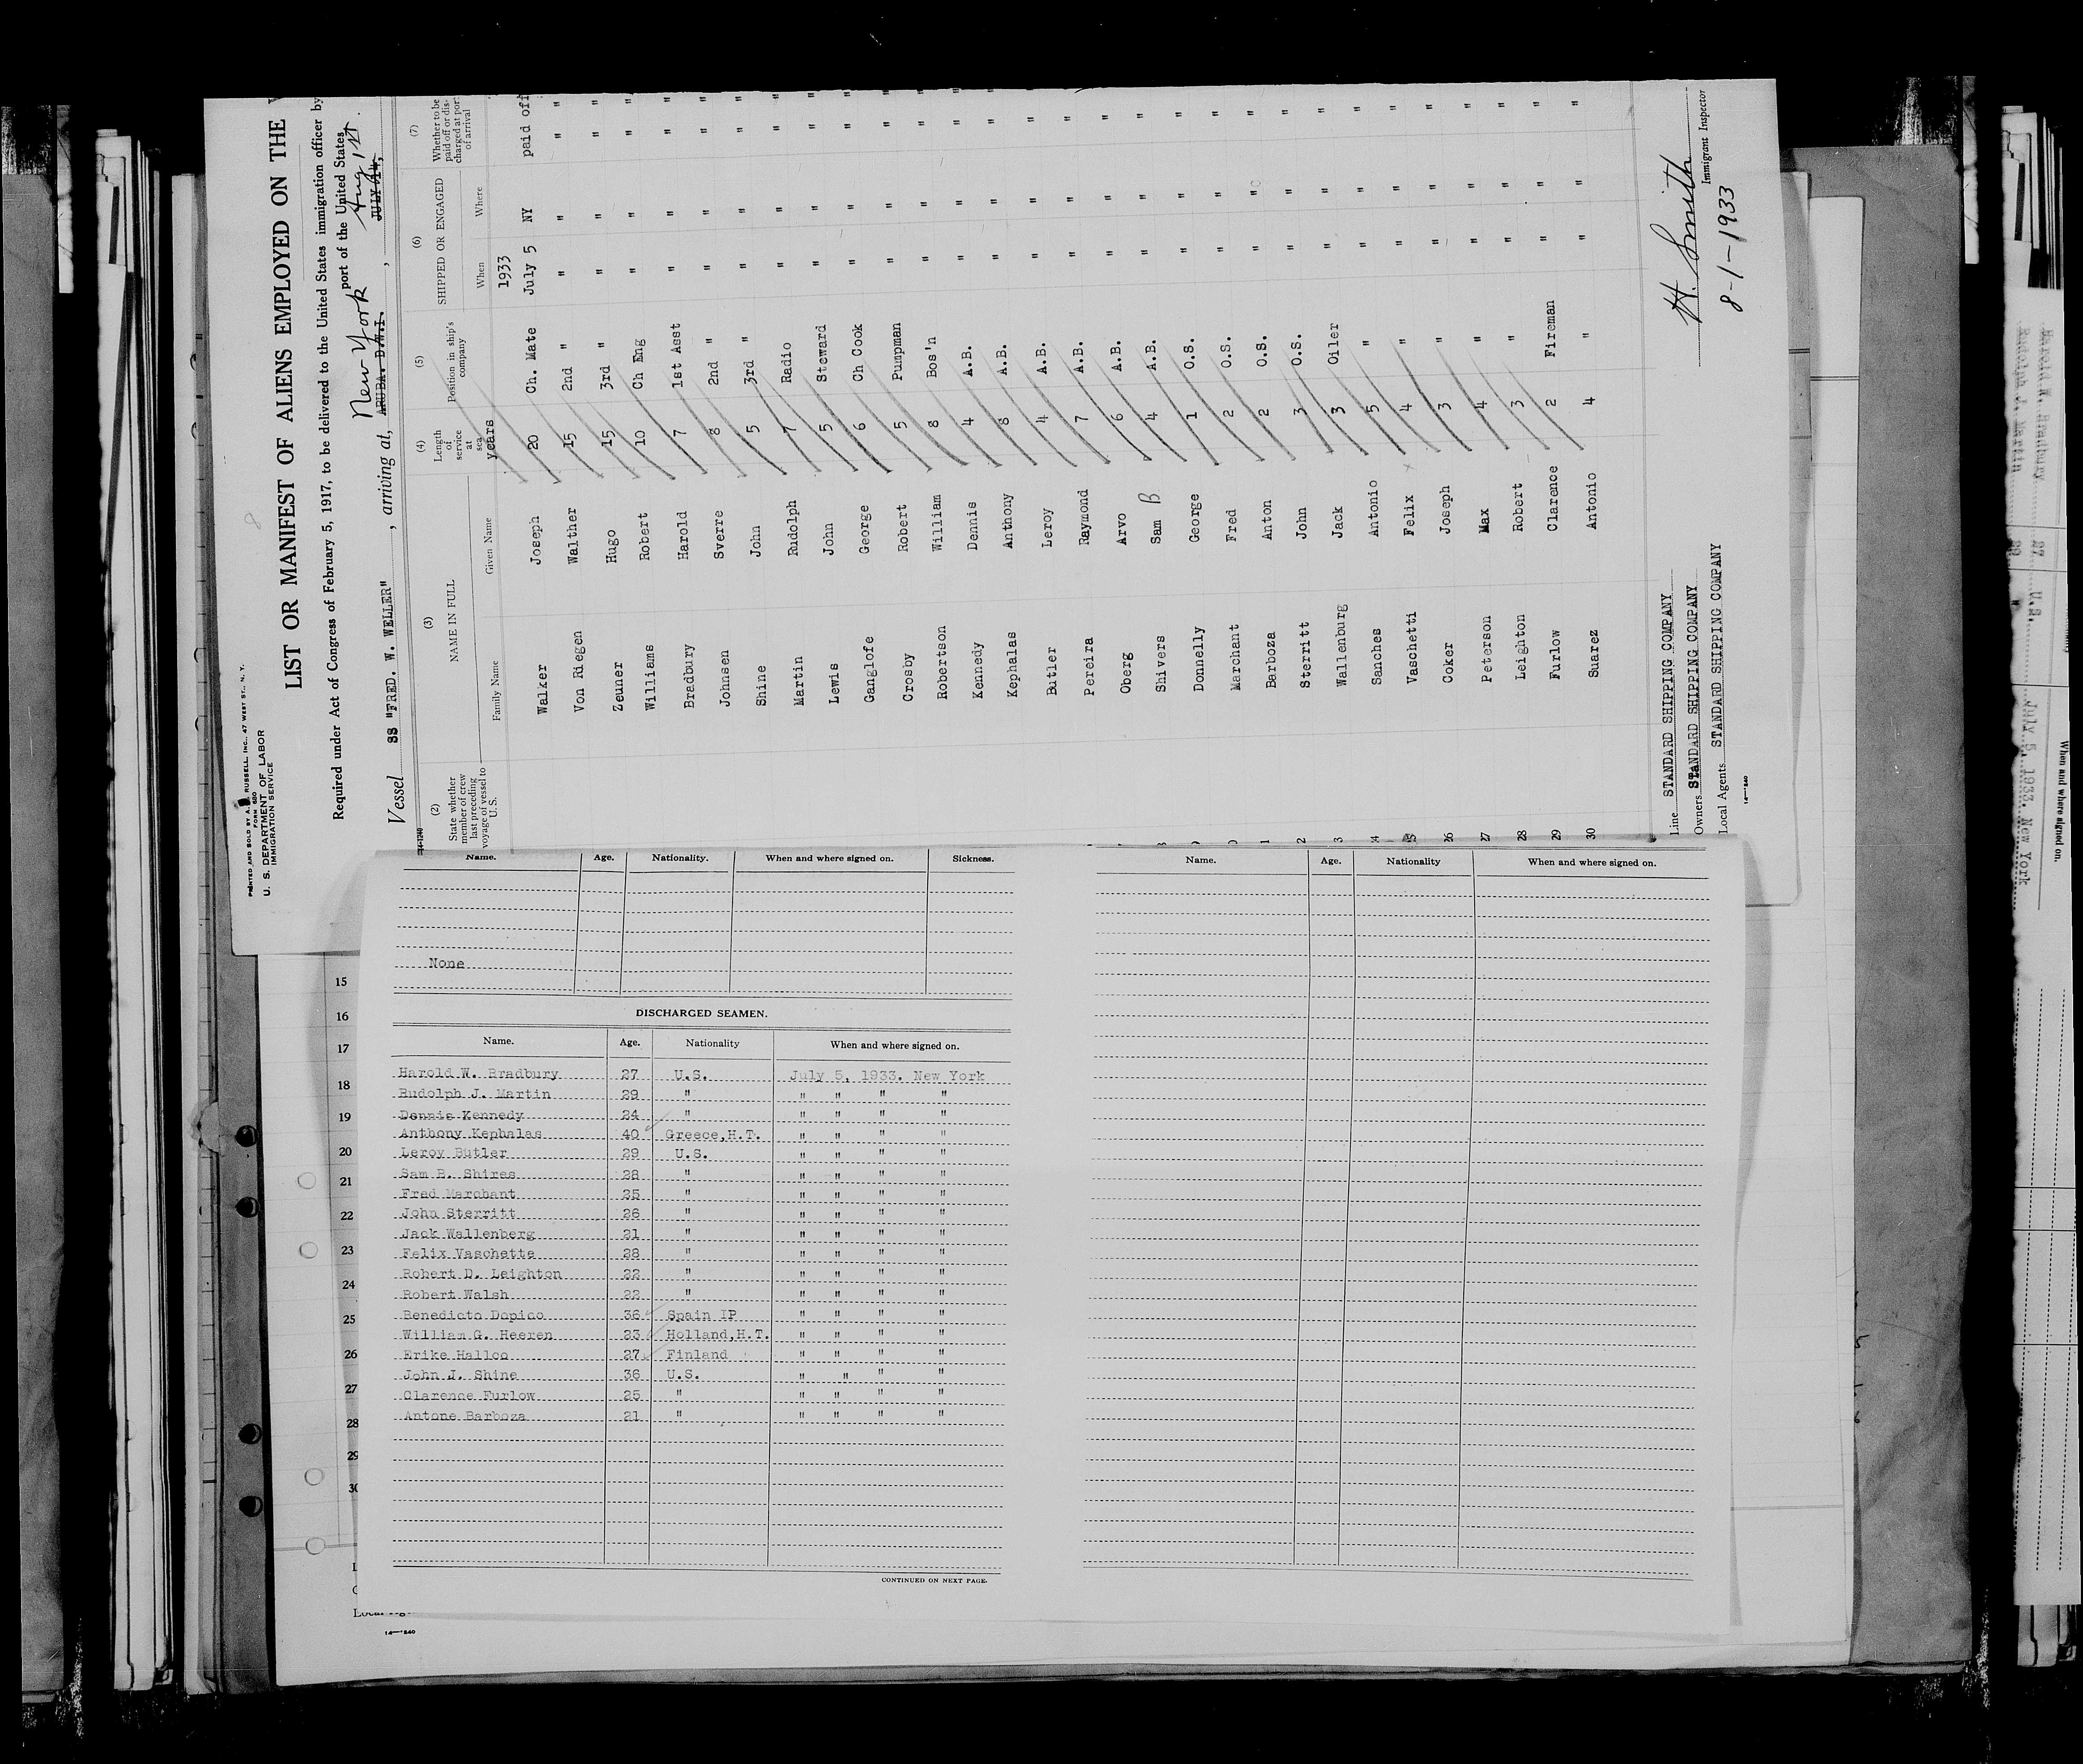 PRINTED AND SOLD BY A. RUSSELL, INC., 47 WEST ST., N. Y.
FORM 680
U. S. DEPARTMENT OF LABOR
IMMIGRATION SERVICE
8
LIST OR MANIFEST OF ALIENS EMPLOYED ON THE
Required under Act of Congress of February 5, 1917, to be delivered to the United States immigration officer by
port of the United States
New York Aug 1st.
Vessel SS "FRED. W. WELLER", arriving at, ARUBA. D.W.I. , JULY 14,
14-1240
(2) (3) (4) (5) (6) (7)
State whether member of crew last preceding voyage of vessel to U. S. NAME IN FULL Length of service at sea Position in ship's company SHIPPED OR ENGAGED Whether to be paid off or discharged at port of arrival
Family Name Given Name years When Where
1933
Walker Joseph 20 Ch. Mate July 5 NY paid off
Von Riegen Walther 15 2nd " " " " "
Zeuner Hugo 15 3rd " " " " "
Williams Robert 10 Ch Eng " " " "
Bradbury Harold 7 1st Asst " " " "
Johnsen Sverre 8 2nd " " " " "
Shine John 5 3rd " " " " "
Martin Rudolph 7 Radio " " " "
Lewis John 5 Steward " " " "
Ganglofe George 6 Ch Cook " " " "
Crosby Robert 5 Pumpman " " " "
Robertson William 8 Bos'n " " " "
Kennedy Dennis 4 A.B. " " " "
Kephalas Anthony 8 A.B. " " " "
Butler Leroy 4 A.B. " " " "
Pereira Raymond 7 A.B. " " " "
Oberg Arvo 6 A.B. " " " "
Shivers Sam B 4 A.B. " " " "
Donnelly George 1 O.S. " " " "
Marchant Fred 2 O.S. " " " "
Barboza Anton 2 O.S. " " " "
2 Sterritt John 3 O.S. " " " "
3 Wallenburg Jack 3 Oiler " " " "
24 Sanches Antonio 5 " " " " "
25 Vaschetti Felix 4 " " " " "
26 Coker Joseph 3 " " " " "
27 Peterson Max 4 " " " " "
28 Leighton Robert 3 " " " " "
29 Furlow Clarence 2 Fireman " " " "
30 Suarez Antonio 4 " " " " "
Line STANDARD SHIPPING COMPANY
Owners STANDARD SHIPPING COMPANY
Local Agents STANDARD SHIPPING COMPANY
14-1240
H. Smith
Immigrant Inspector
8-1-1933
Name. Age. Nationality. When and where signed on. Sickness.
None
DISCHARGED SEAMEN.
Name. Age. Nationality When and where signed on.
Harold W. Bradbury 27 U.S. July 5, 1933. New York
Rudolph J. Martin 29 " " " " "
Dennis Kennedy 24 " " " " "
Anthony Kephalas 40 Greece,H.T. " " " "
Leroy Butler 29 U.S. " " " "
Sam B. Shires 28 " " " " "
Fred Marchant 25 " " " " "
John Sterritt 26 " " " " "
Jack Wallenberg 21 " " " " "
Felix Vaschette 28 " " " " "
Robert D. Leighton 22 " " " " "
Robert Walsh 22 " " " " "
Benedicto Dopico 36 Spain IP " " " "
William G. Heeren 23 Holland,H.T. " " " "
Erike Hallco 27 Finland " " " "
John J. Shine 36 U.S. " " " "
Clarence Furlow 25 " " " " "
Antone Barboza 21 " " " " "
CONTINUED ON NEXT PAGE.
Name. Age. Nationality When and where signed on.
15
16
17
18
19
20
21
22
23
24
25
26
27
28
29
30
14-1240
When and where signed on.
Harold W. Bradbury 27 U.S. July 5, 1933. New York
Rudolph J. Martin 29 "